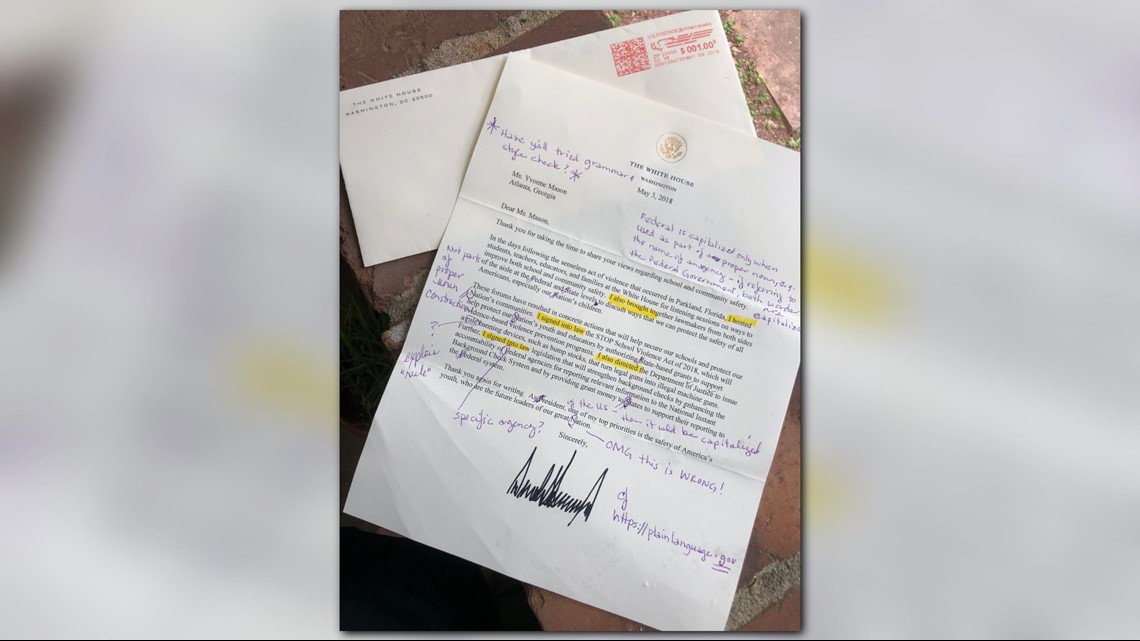 THE WHITE HOUSE
WASHINGTON, DC 20500
U.S. POSTAGE
$ 001.00⁰
* Have y'all tried grammar &
style check? *
THE WHITE HOUSE
WASHINGTON
May 3, 2018
Ms. Yvonne Mason
Atlanta, Georgia
Dear Ms. Mason,
Federal is capitalized only when
used as part of proper noun, e.g.
the name of an agency - if referring to
the Federal Government, both words
are
capitalized
Thank you for taking the time to share your views regarding school and community safety.
In the days following the senseless act of violence that occurred in Parkland, Florida, I hosted
students, teachers, educators, and families at the White House for listening sessions on ways to
improve both school and community safety. I also brought together lawmakers from both sides
of the aisle at the Federal and State levels to discuss ways that we can protect the safety of all
Americans, especially our Nation's children.
Not part
of
proper
noun
construction
These forums have resulted in concrete actions that will help secure our schools and protect our
Nation's communities. I signed into law the STOP School Violence Act of 2018, which will
help protect our Nation's youth and educators by authorizing State-based grants to support
evidence-based violence prevention programs. I also directed the Department of Justice to issue
a rule banning devices, such as bump stocks, that turn legal guns into illegal machine guns.
Further, I signed into law legislation that will strengthen background checks by enhancing the
accountability of Federal agencies for reporting relevant information to the National Instant
Background Check System and by providing grant money to States to support their reporting to
the Federal system.
?
explain
"rule"
Thank you again for writing. As President, one of my top priorities is the safety of America's
youth, who are the future leaders of our great Nation.
of the US - then it would be capitalized
specific agency?
Sincerely,
OMG this is WRONG!
cf
https://plainlanguage.gov